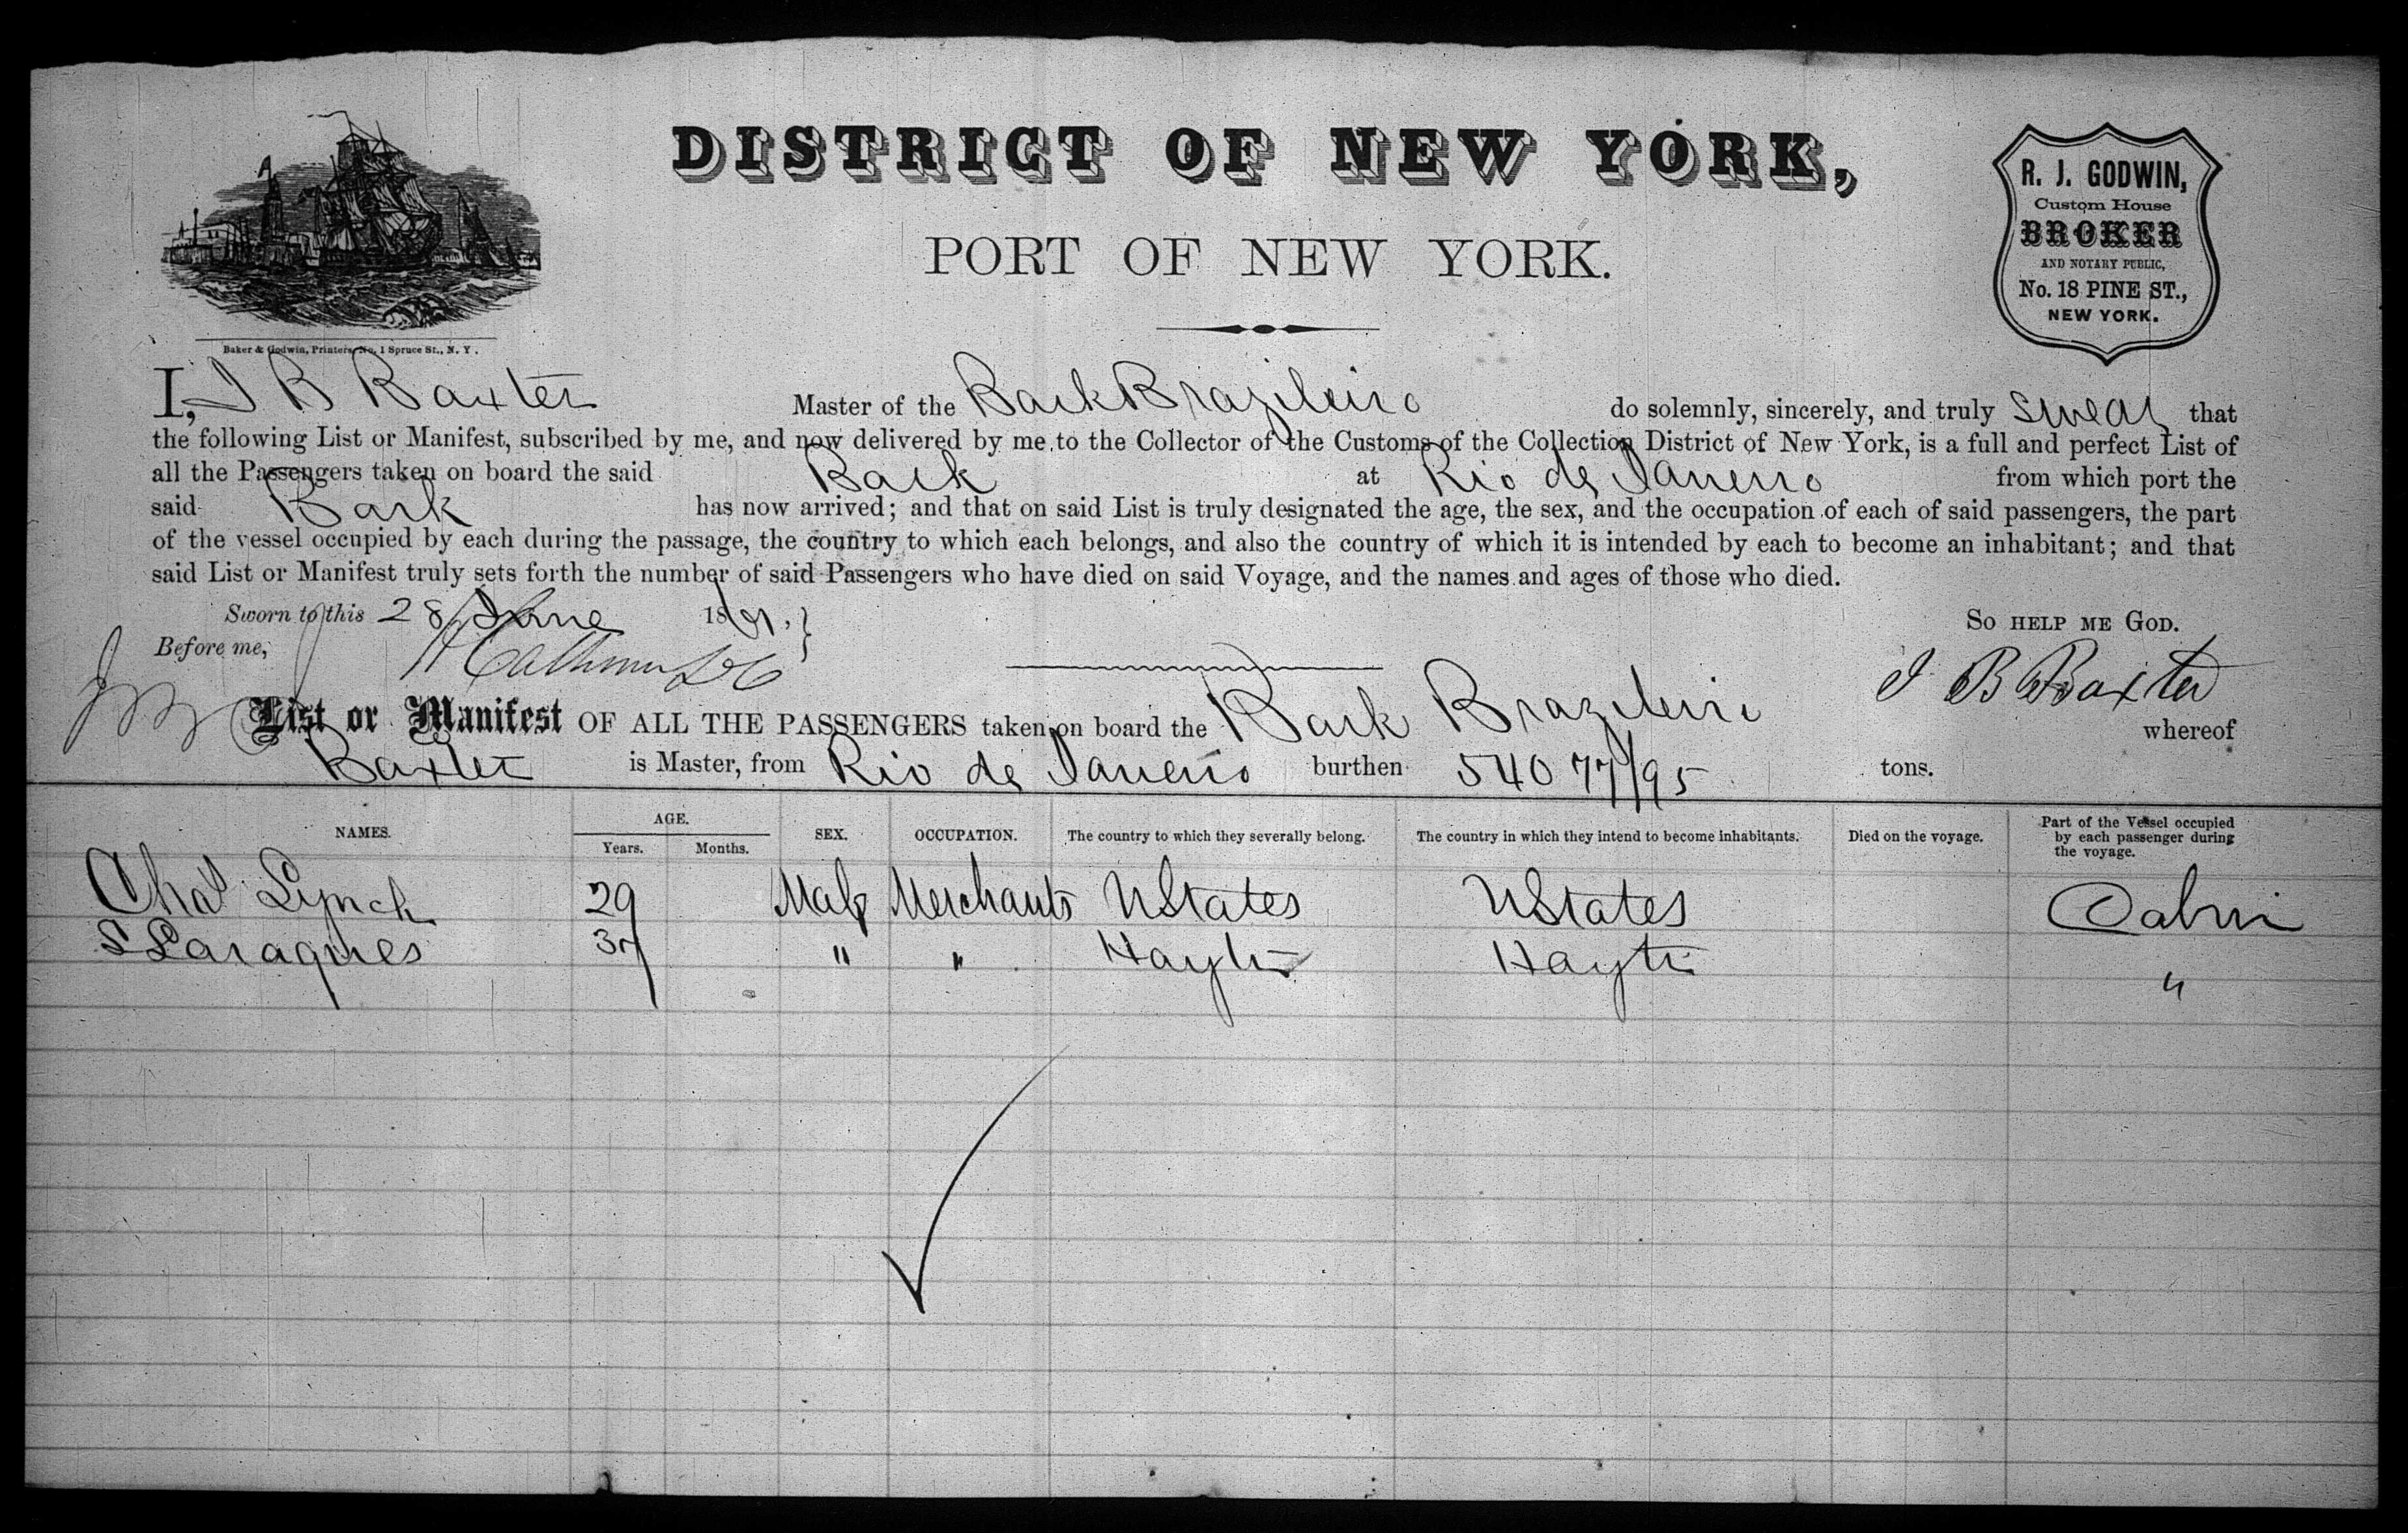 DISTRICT OF NEW YORK,
PORT OF NEW YORK.
R. J. GODWIN,
Custom House
BROKER
AND NOTARY PUBLIC,
No. 18 PINE ST.,
NEW YORK.
Baker & Godwin, Printers, No. 1 Spruce St., N. Y.
I, J B Baxter Master of the Bark Brazileiro do solemnly, sincerely, and truly swear that
the following List or Manifest, subscribed by me, and now delivered by me to the Collector of the Customs of the Collection District of New York, is a full and perfect List of
all the Passengers taken on board the said Bark at Rio de Janeiro from which port the
said Bark has now arrived; and that on said List is truly designated the age, the sex, and the occupation of each of said passengers, the part
of the vessel occupied by each during the passage, the country to which each belongs, and also the country of which it is intended by each to become an inhabitant; and that
said List or Manifest truly sets forth the number of said Passengers who have died on said Voyage, and the names and ages of those who died.
Sworn to this 28 June 1861. So HELP ME GOD.
Before me,
J B Baxter
List or Manifest OF ALL THE PASSENGERS taken on board the Bark Brazileiro whereof
Baxter is Master, from Rio de Janeiro burthen 540 77/95 tons.
NAMES. AGE. Years. Months. SEX. OCCUPATION. The country to which they severally belong. The country in which they intend to become inhabitants. Died on the voyage. Part of the Vessel occupied by each passenger during the voyage.
Chas Lynch 29 Male Merchants UStates UStates Cabin
S Laraques 37 " " Hayti Hayti "